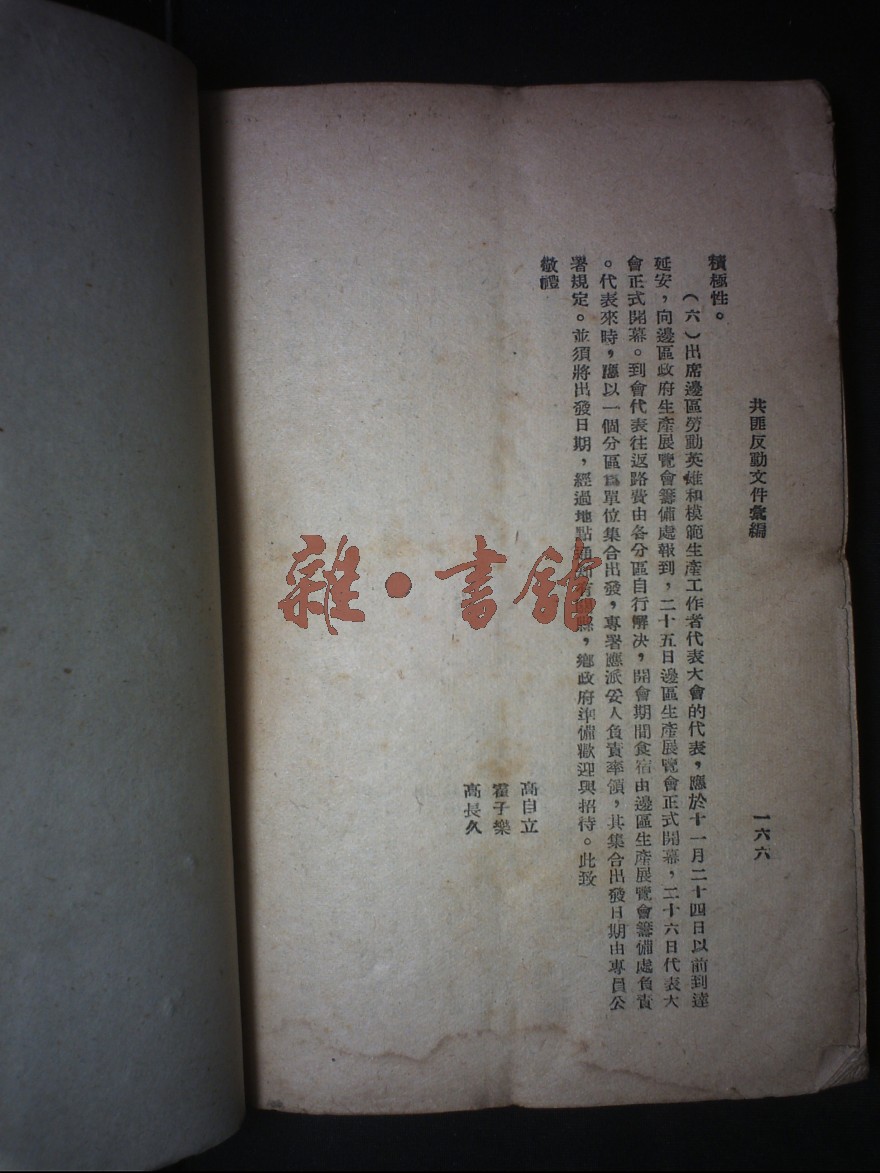 共匪反動文件彙編
一六六
積極性。
(六)出席邊區勞動英雄和模範生產工作者代表大會的代表,應於十一月二十四日以前到達
延安,向邊區政府生產展覽會籌備處報到,二十五日邊區生產展覽會正式開幕,二十六日代表大
會正式開幕。到會代表往返路費由各分區自行解決,開會期間食宿由邊區生產展覽會籌備處負責
。代表來時,應以一個分區爲單位集合出發,專署應派妥人負責率領,其集合出發日期由專員公
署規定。並須將出發日期,經過地點通知縣,鄉政府準備歡迎與招待。此致
敬禮
高自立
霍子樂
高長久
雜·書館